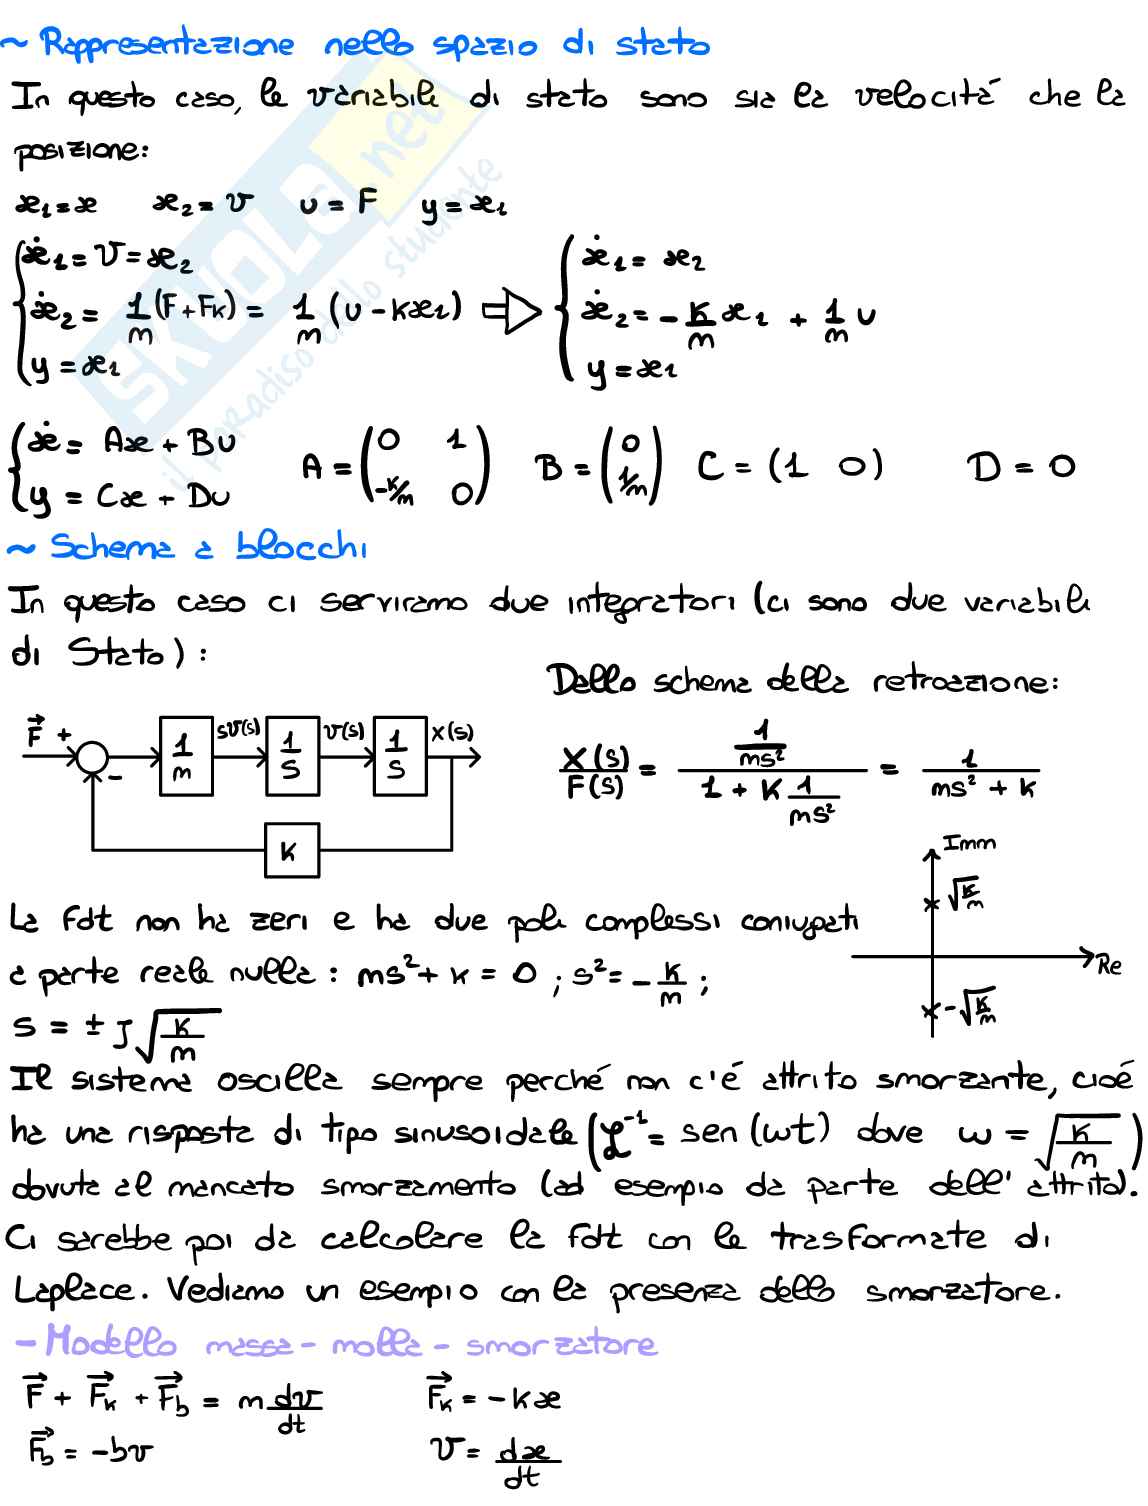 ~ Rappresentazione nello spazio di stato
In questo caso, le variabile di stato sono sia la velocità che la
posizione:
x₁=x x₂=v u=F y=x₁
ẋ₁=v=x₂
ẋ₂= 1/m (F+Fk) = 1/m (u-kx₁) ⇒
y=x₁
ẋ₁= x₂
ẋ₂= -k/m x₁ + 1/m u
y=x₁
ẋ= Ax + Bu
y = Cx + Du
A = (0 1 -k/m 0) B = (0 1/m) C = (1 0) D = 0
~ Schema a blocchi
In questo caso ci serviranno due integratori (ci sono due variabili
di Stato):
Dallo schema della retroazione:
F + - 1/m sv(s) 1/s v(s) 1/s x(s)
K
X(s)/F(s) = (1/ms²)/(1 + K 1/ms²) = 1/(ms² + k)
Imm
√(k/m)
Re
-√(k/m)
La fdt non ha zeri e ha due poli complessi coniugati
a parte reale nulla: ms²+ k = 0 ; s²= - k/m ;
s = ± J √(k/m)
Il sistema oscilla sempre perché non c'é attrito smorzante, cioé
ha una risposta di tipo sinusoidale (ℒ⁻¹= sen(ωt) dove ω = √(k/m))
dovuta al mancato smorzamento (ad esempio da parte dell'attrito).
Ci sarebbe poi da calcolare la fdt con le trasformate di
Laplace. Vediamo un esempio con la presenza dello smorzatore.
- Modello massa - molla - smorzatore
F + Fk + Fb = m dv/dt Fk = -kx
Fb = -bv v = dx/dt
SKUOLA.net
il paradiso dello studente